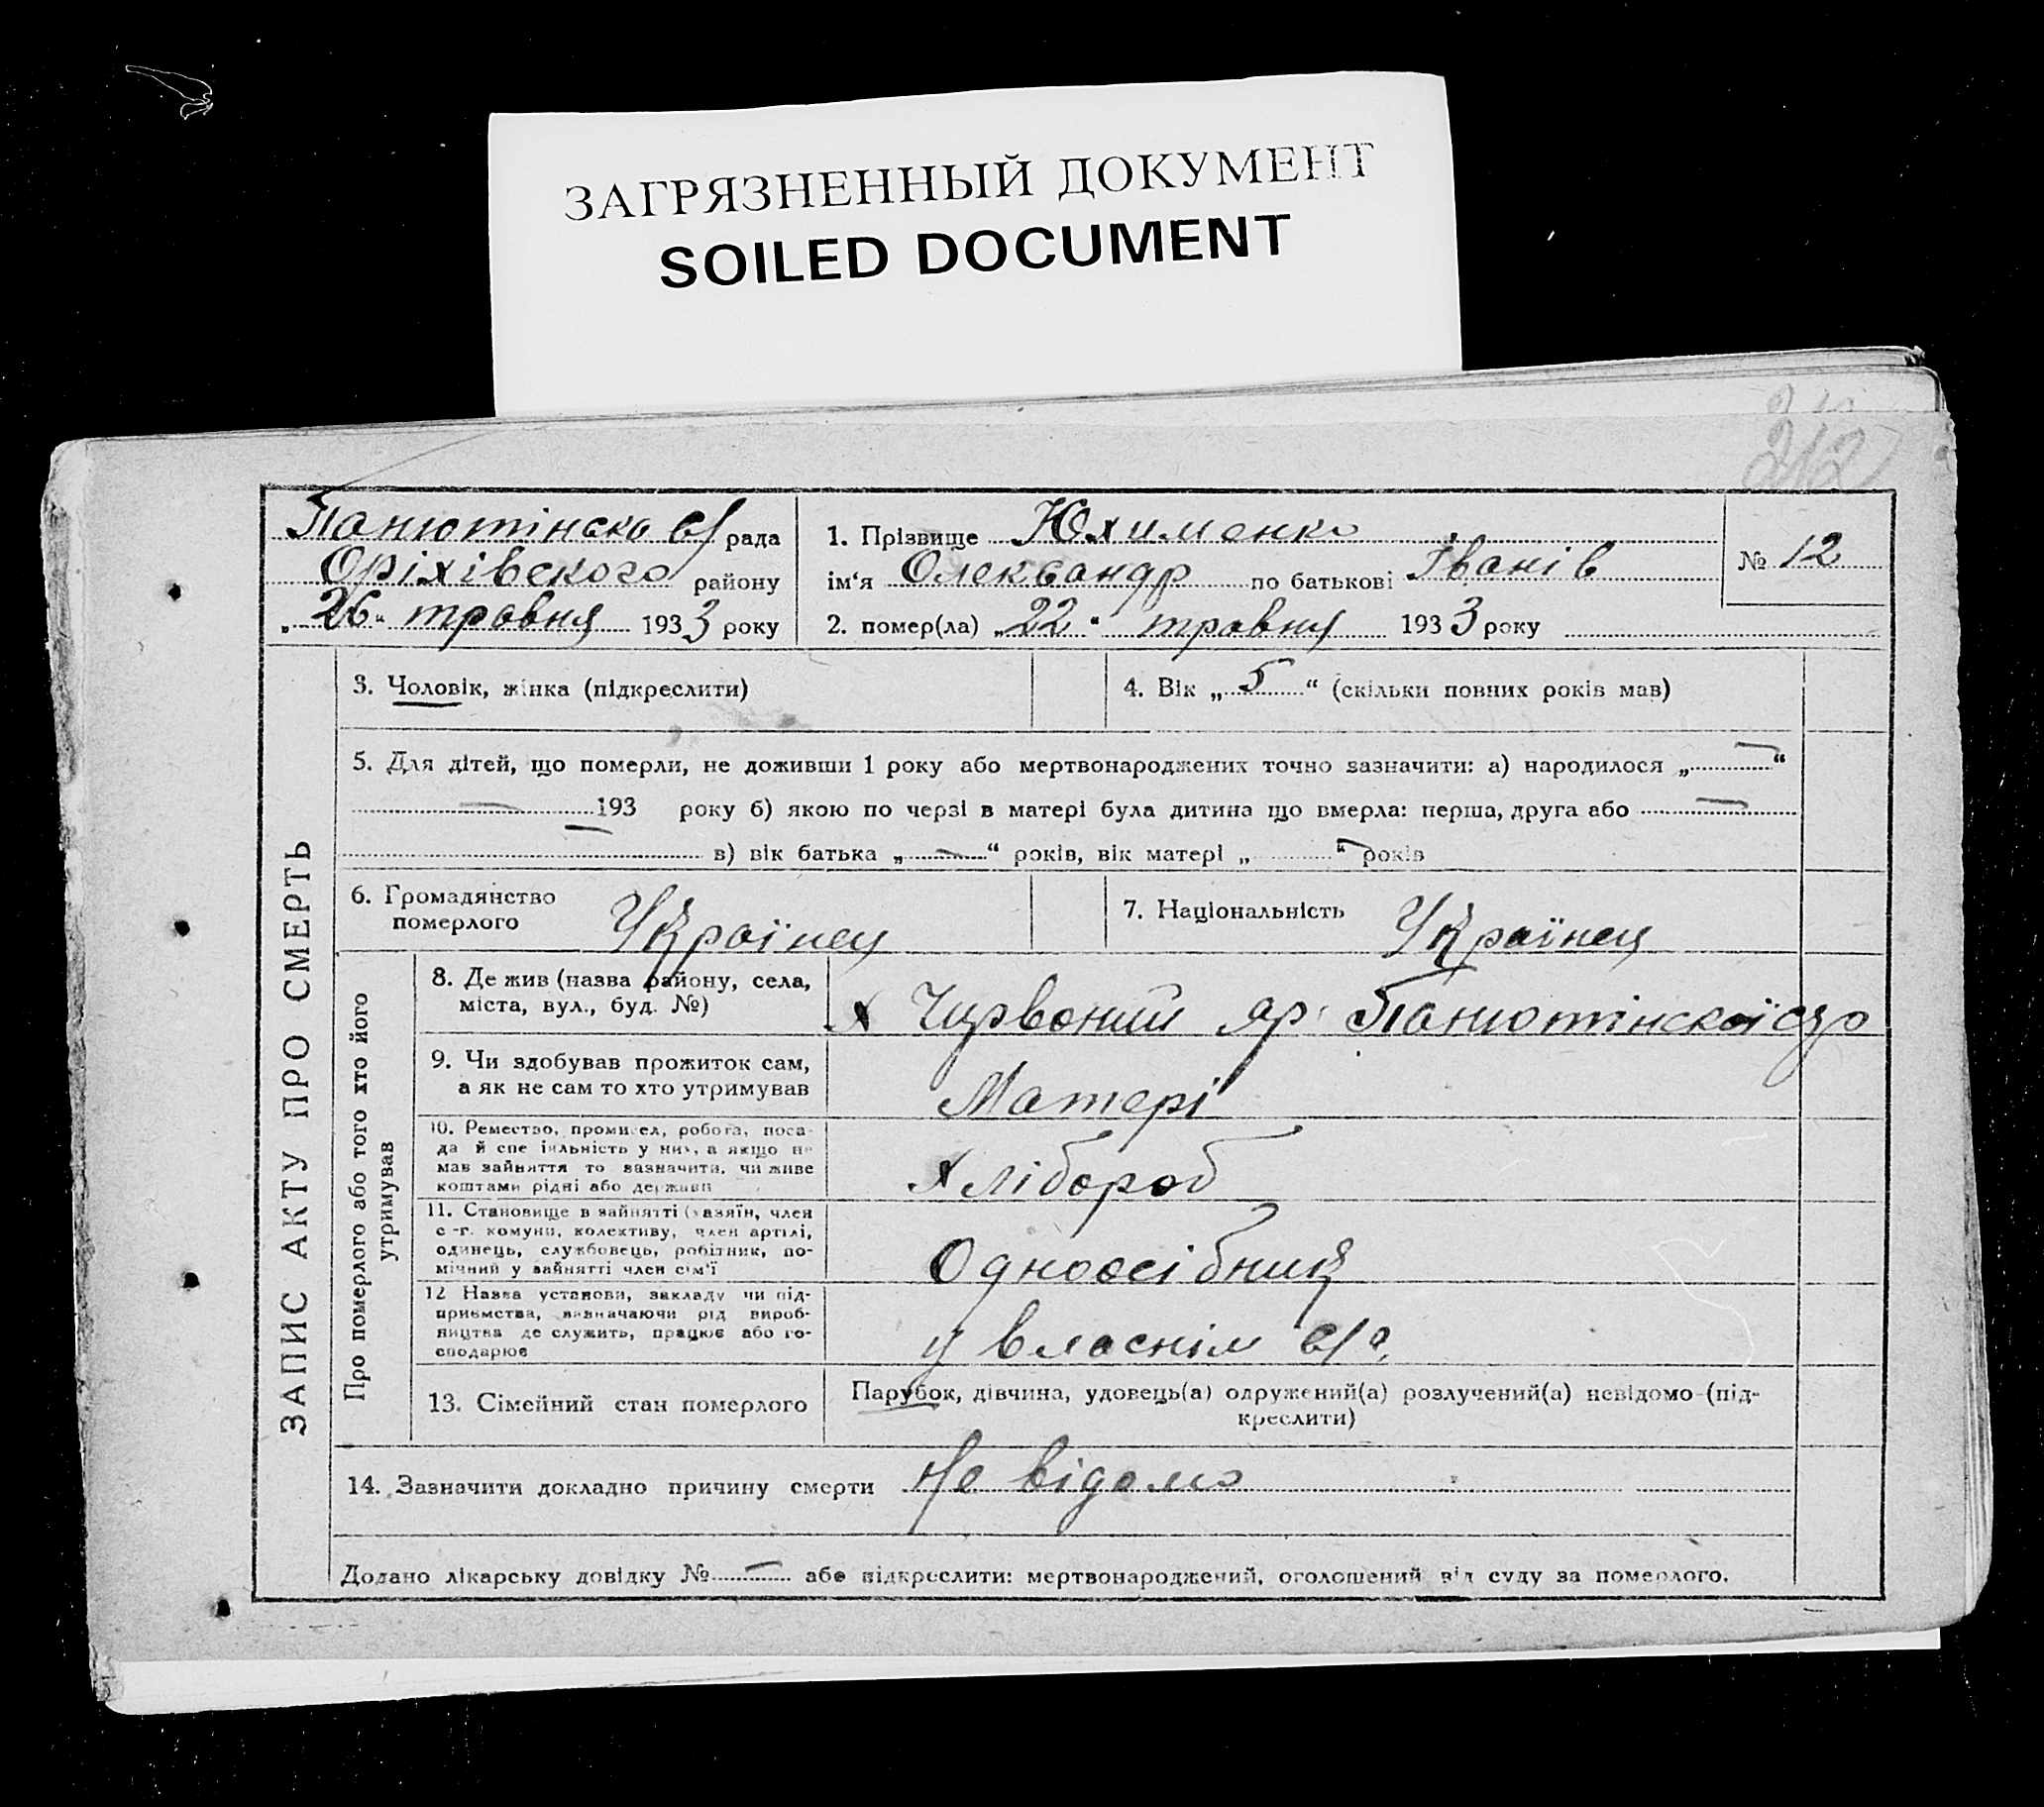 ЗАГРЯЗНЕННЫЙ ДОКУМЕНТ
SOILED DOCUMENT
212
Панютінсько с/рада
Оріхівського району
„26“ травня 1933 року
1. Прізвище Юхименко
ім‘я Олександр по батькові Іванів
2. помер(ла) „22“ травня 1933 року
№ 12
ЗАПИС АКТУ ПРО СМЕРТЬ
3. Чоловік, жінка (підкреслити)
4. Вік „5“ (скільки повних років мав)
5. Для дітей, що померли, не доживши 1 року або мертвонароджених точно зазначити: а) народилося „—“
— 193 — року б) якою по черзі в матері була дитина що вмерла: перша, друга або —
в) вік батька „—“ років, вік матері „—“ років
6. Громадянство
померлого
Українец
7. Національність Українец
Про померлого або того хто його
утримував
8. Де жив (назва району, села,
міста, вул., буд. №)
х Червоний яр Панютінскої
9. Чи здобував прожиток сам,
а як не сам то хто утримував
Матері
10. Ремество, промисел, робота, поса-
да й спеціяльність у них, а якщо не
мав зайняття то зазначити, чи живе
коштами рідні або держави
Хлібороб
11. Становище в зайнятті (хазяїн, член
с.-г. комуни, колективу, член артілі,
одинець, службовець, робітник, по-
мічний у зайнятті член сім‘ї
Одноосібник
12 Назва установи, закладу чи під-
приємства, визначаючи рід вироб-
ництва де служить, працює або го-
сподарює
у власнім с/г.
13. Сімейний стан померлого
Парубок, дівчина, удовець(а) одружений(а) розлучений(а) невідомо-(під-
креслити)
14. Зазначити докладно причину смерти Не відомо
Додано лікарську довідку № — або підкреслити: мертвонароджений, оголошений від суду за померлого.